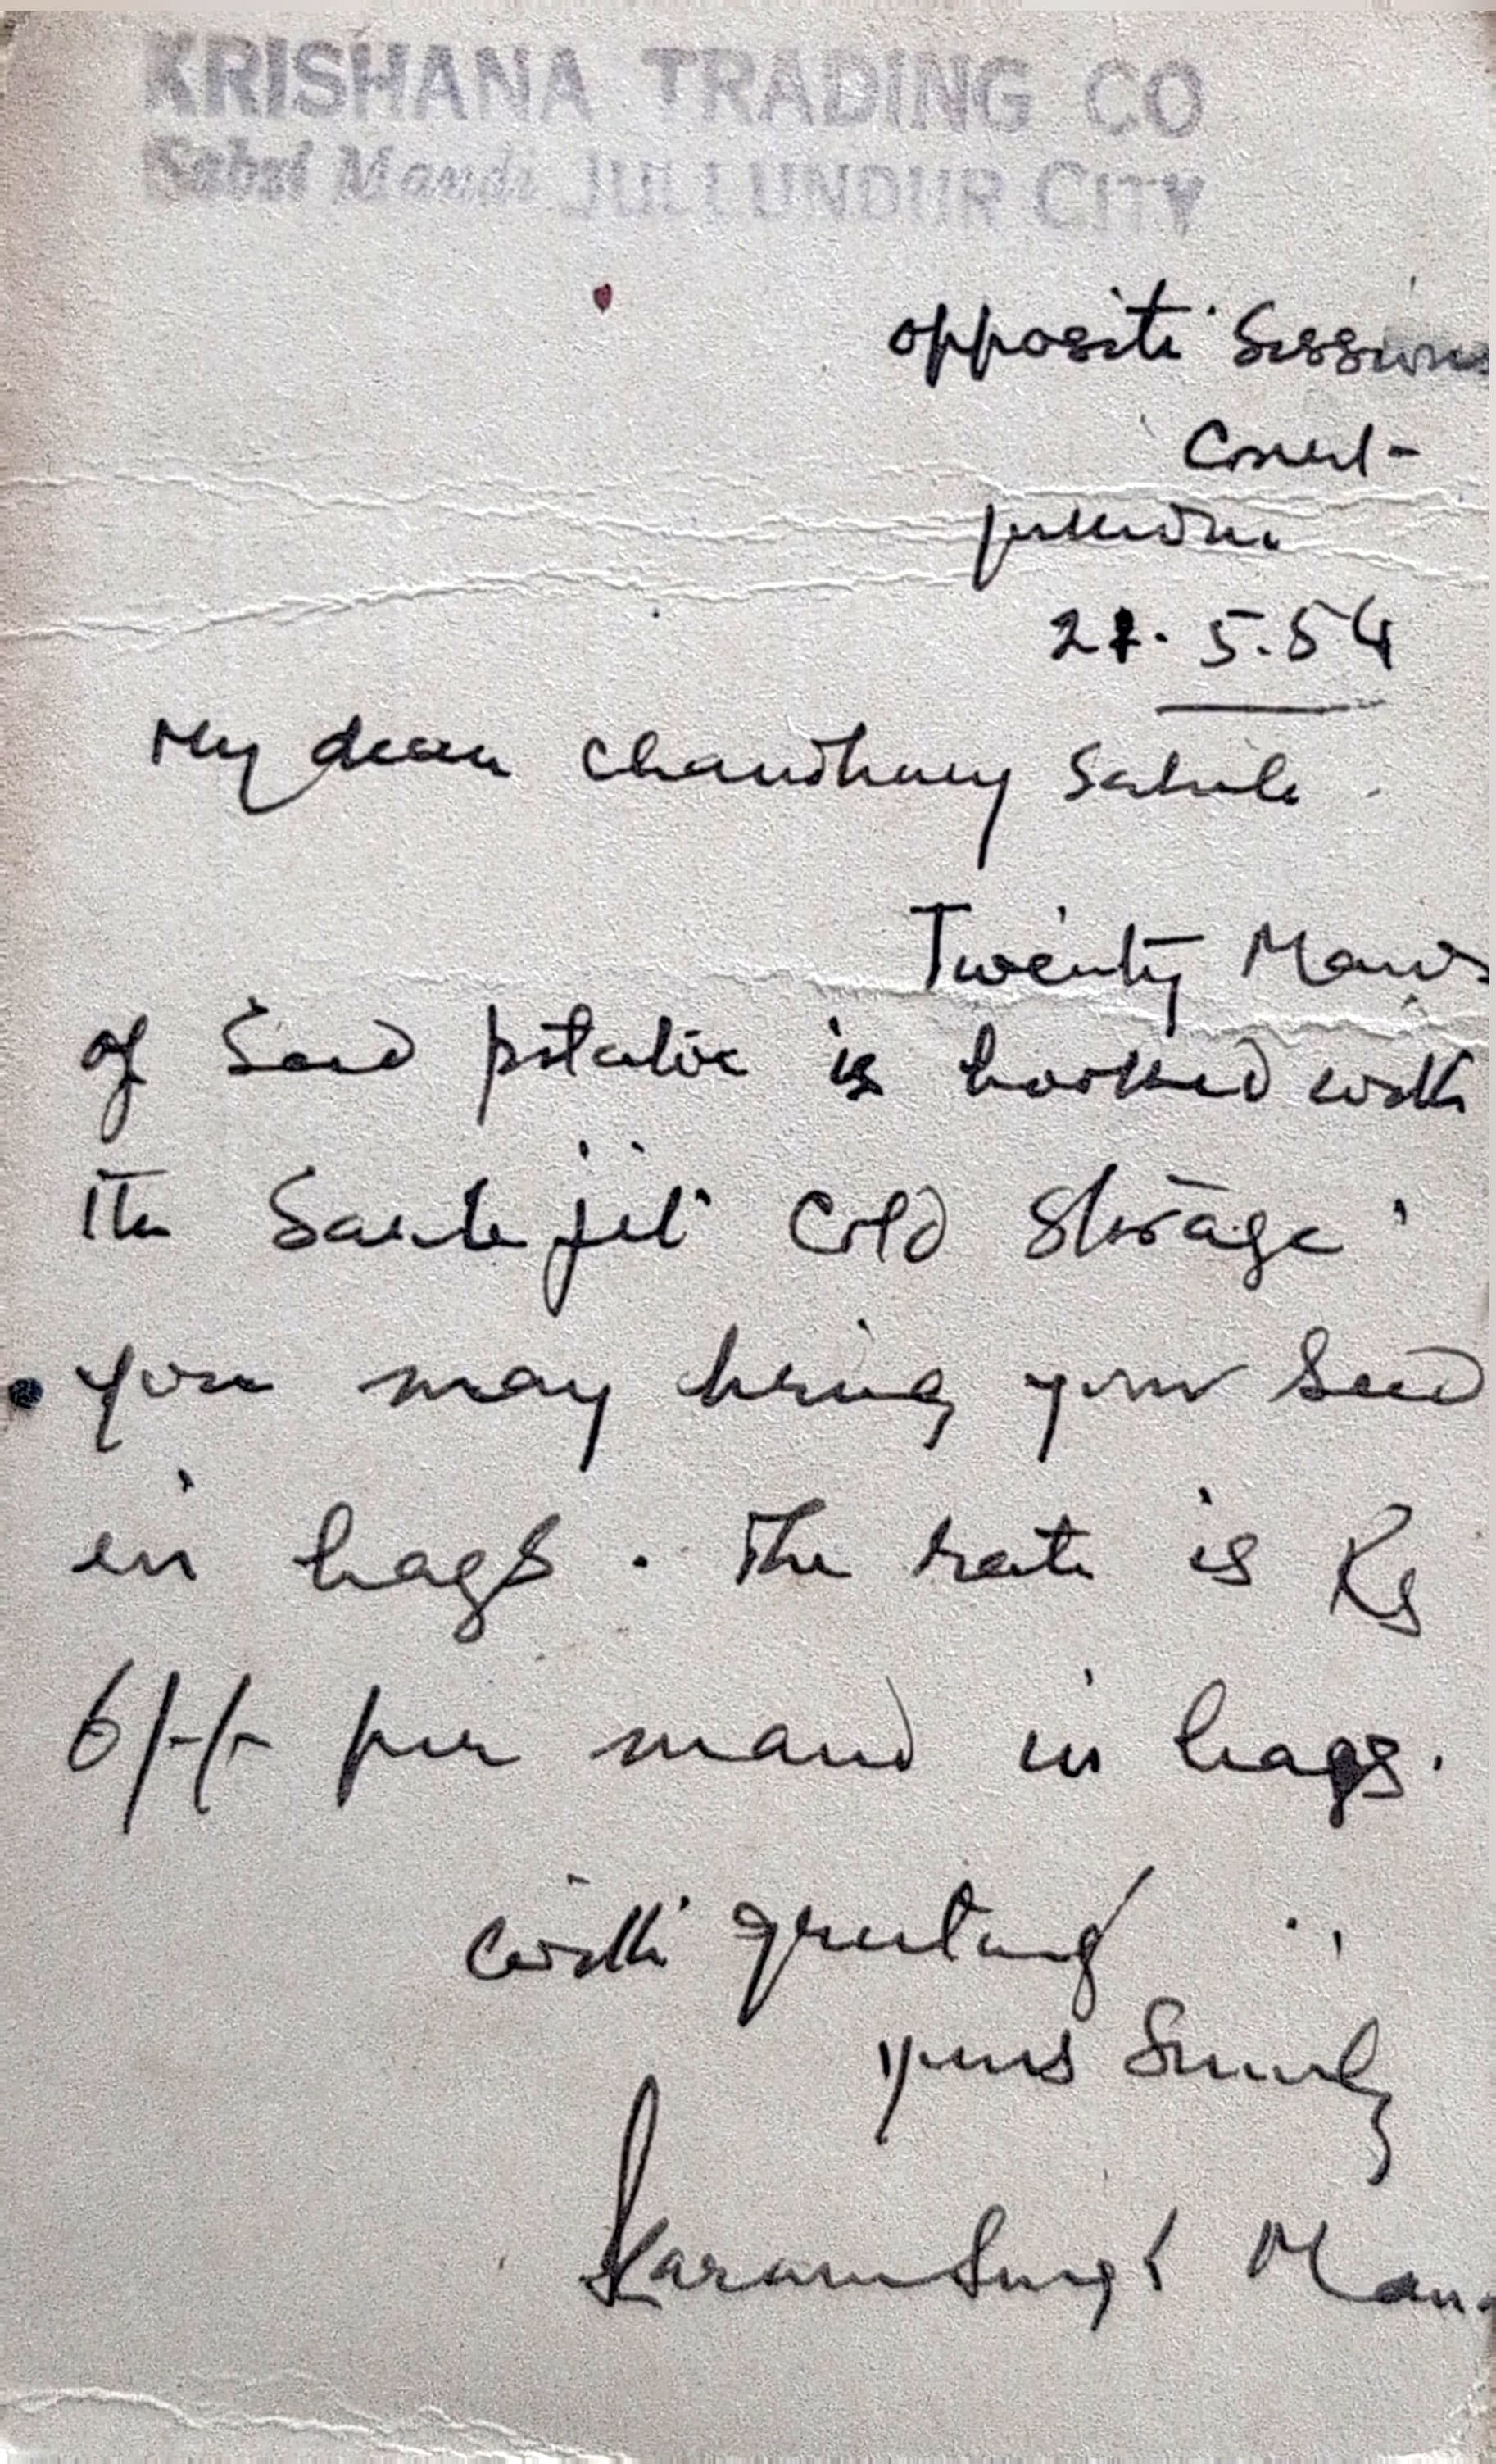 KRISHANA TRADING CO
Sabzi Mandi JULLUNDUR CITY
opposite Sessions
Court-
Jullundur
5.54
My dear Chaudhary Sahib.
Twenty Maunds
of Seed potatoe is booked with
the cold storage.
you may bring your seed
in bags. The rate is Rs
6/-/- per maund in bags.
with greetings
yours Sincerely
Karam Singh